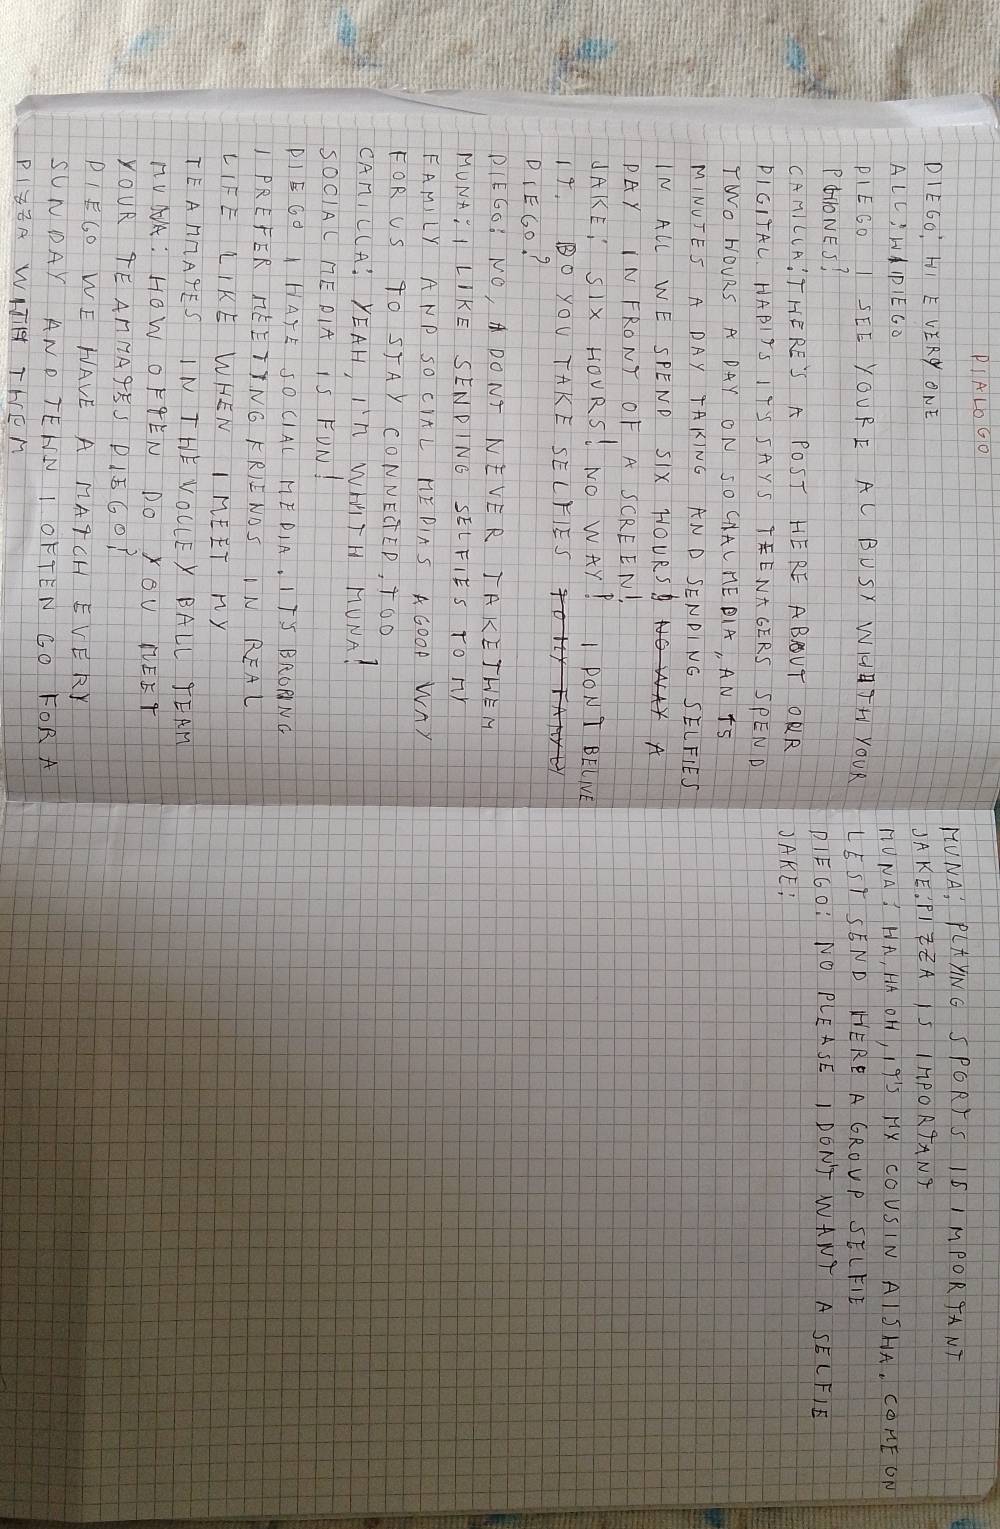 DIALOGO
DIEGO; HI EVERYONE
ALL; HI DIEGO
DIEGO I SEE YOURE AL BUSY WHITH YOUR
PHONES!
CAMILLA; THERE'S A POST HERE ABOUT OUR
DIGITAL HABITS ITS SAYS TEENAGERS SPEND
TWO HOURS A DAY ON SOCIAL MEDIA, ANTS
MINUTES A DAY TAKING AND SENDING SELFIES
IN ALL WE SPEND SIX HOURS! NO WAY A
DAY IN FRONT OF A SCREEN!
JAKE; SIX HOURS! NO WAY! I DONT BELIVE
IT. DO YOU TAKE SELFIES TO MY FAMILY
DIEGO?
DIEGO: NO, I DONT NEVER TAKETHEM
MUNA; I LIKE SENDING SELFIES TO MY
FAMILY AND SOCIAL MEDIAS A GOOD WAY
FOR US TO STAY CONNECTED, TOO
CAMILLA: YEAH, I'M WHITH MUNA!
SOCIAL MEDIA IS FUN!
DIEGO I HATE SOCIAL MEDIA. IT'S BRORING
I PREFER MEETING FRIENDS IN REAL
LIFE LIKE WHEN I MEET MY
TEAMMATES IN THE VOLLEYBALL TEAM
MUNA: HOW OFTEN DO YOU MEET
YOUR TEAMMATES DIEGO?
DIEGO WE HAVE A MATCH EVERY
SUNDAY AND TEHN I OFTEN GO FOR A
PIZZA WITH THEM
MUNA; PLAYING SPORTS IS IMPORTANT
JAKE: PIZZA IS IMPORTANT
MUNA: HA, HA OH, IT'S MY COUSIN AISHA. COME ON
LEST SEND HERE A GROUP SELFIE
DIEGO: NO PLEASE I DON'T WANT A SELFIE
JAKE;